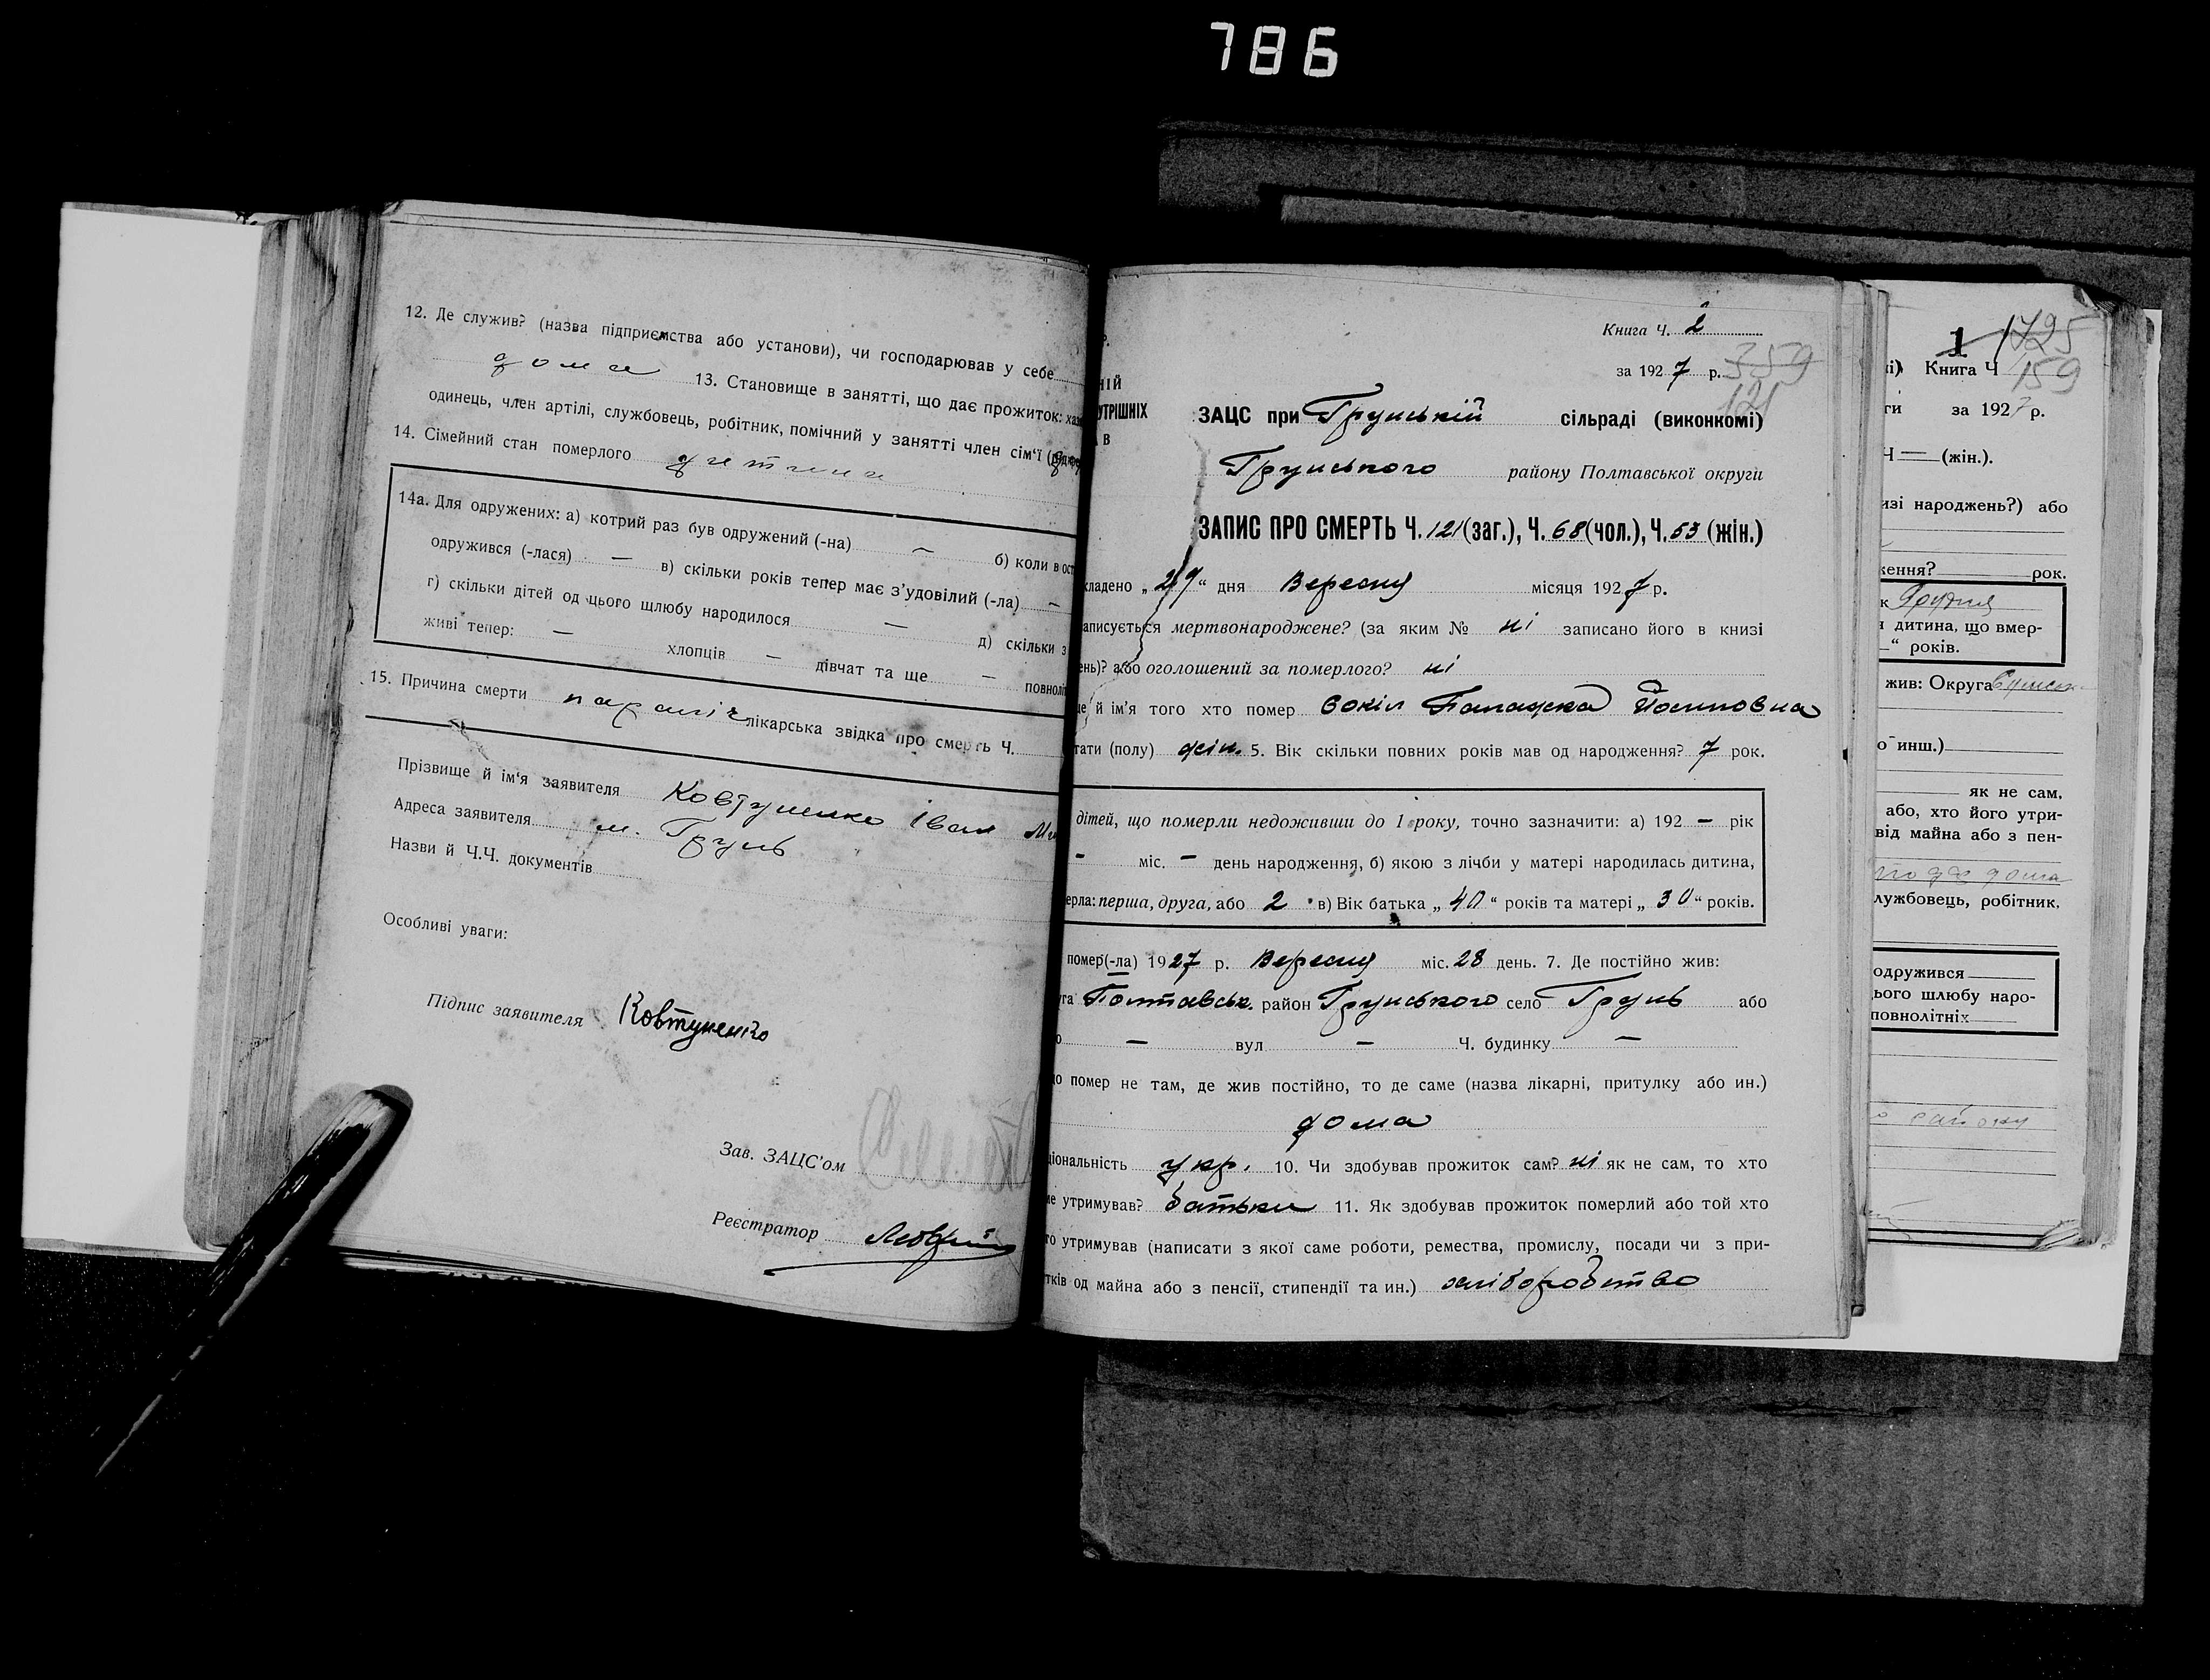 786
12. Де служив? (назва підприємства або установи), чи господарював у себе
дома 13. Становище в занятті, що дає прожиток: хаз
одинець, член артілі, службовець, робітник, помічний у занятті член сім'ї
14. Сімейний стан померлого дитина
14а. Для одружених: а) котрий раз був одружений (-на) — б) коли в ост
одружився (-лася) — в) скільки років тепер має з'удовілий (-ла) —
г) скільки дітей од цього щлюбу народилося — д) скільки з
живі тепер: — хлопців — дівчат та ще — повноліт
15. Причина смерти параліч лікарська звідка про смерть Ч.
Прізвище й ім'я заявителя Ковтуненко Іван
Адреса заявителя м. Грунь
Назви й Ч.Ч. документів
Особливі уваги:
Підпис заявителя Ковтуненко
Зав. ЗАЦС'ом
Реєстратор
НІЙ
УТРІШНІХ
В
Книга Ч. 2
за 1927 р. 359
121
ЗАЦС при Грунській сільраді (виконкомі)
Грунського району Полтавської округи
ЗАПИС ПРО СМЕРТЬ Ч. 121 (заг.), Ч. 68 (чол.), Ч. 53 (жін.)
кладено „29“ дня Вересня місяця 1927 р.
аписується мертвонароджене? (за яким № ні записано його в книзі
ень)? або оголошений за померлого? ні
ще й ім'я того хто помер Сокіл Палажка Йосиповна
тати (полу) жін. 5. Вік скільки повних років мав од народження? 7 рок.
дітей, що померли недоживши до 1 року, точно зазначити: а) 192 — рік
— міс. — день народження, б) якою з лічби у матері народилась дитина,
ерла: перша, друга, або 2 в) Вік батька „40“ років та матері „30“ років.
помер(-ла) 1927 р. Вересня міс. 28 день. 7. Де постійно жив:
га Полтавськ. район Грунського село Грунь або
о — вул — Ч. будинку —
що помер не там, де жив постійно, то де саме (назва лікарні, притулку або ин.)
дома
ціональність укр. 10. Чи здобував прожиток сам? ні як не сам, то хто
ме утримував? батьки 11. Як здобував прожиток померлий або той хто
го утримував (написати з якої саме роботи, ремества, промислу, посади чи з при-
тків од майна або з пенсії, стипендії та ин.) хліборобство
1 1795
Книга Ч 159
ги за 1927 р.
Ч — (жін.).
изі народжень?) або
ження? рок.
к Грудня
я дитина, що вмер-
—“ років.
жив: Округа Сумськ.
о инш.)
як не сам,
або, хто його утри-
від майна або з пен-
дома
лужбовець, робітник,
одружився
ього шлюбу наро-
повнолітніх
району